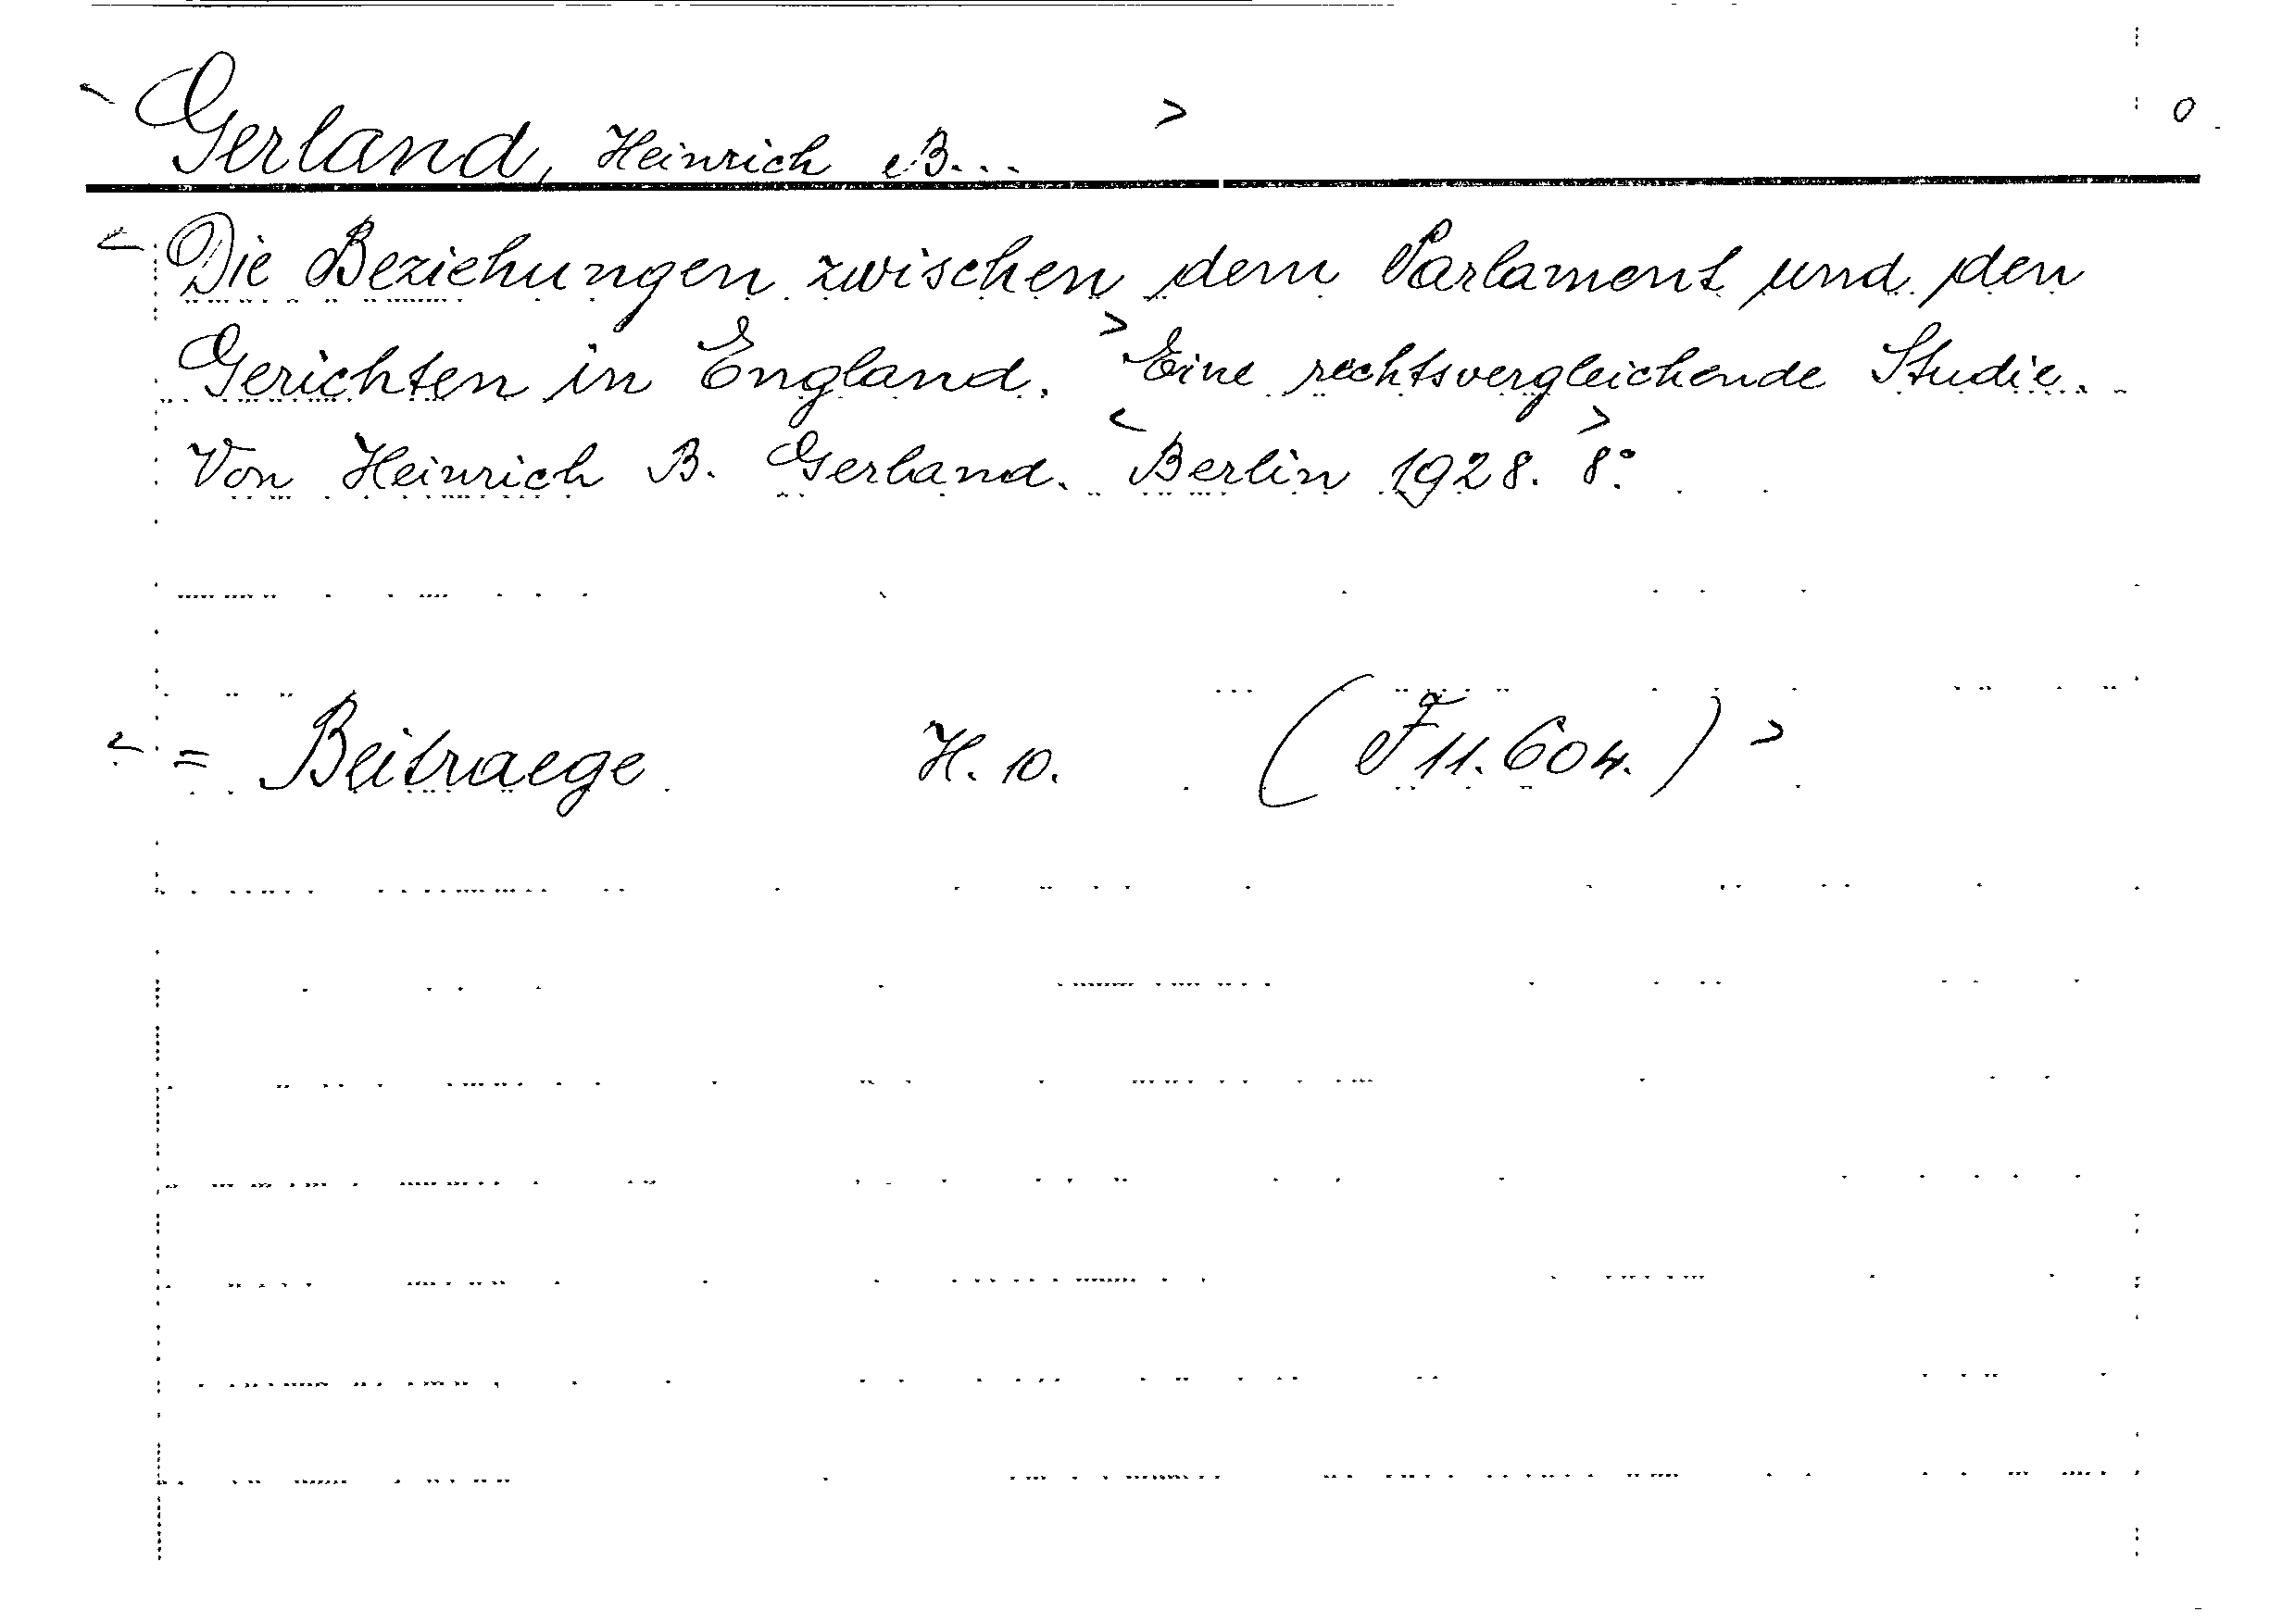 < Gerland, Heinrich B... > 0
< Die Beziehungen zwischen dem Parlament und den
Gerichten in England. > Eine rechtsvergleichende Studie.
Von Heinrich B. Gerland. < Berlin 1928. 8°. >
< = Beitraege H. 10. (F 11.604.) >